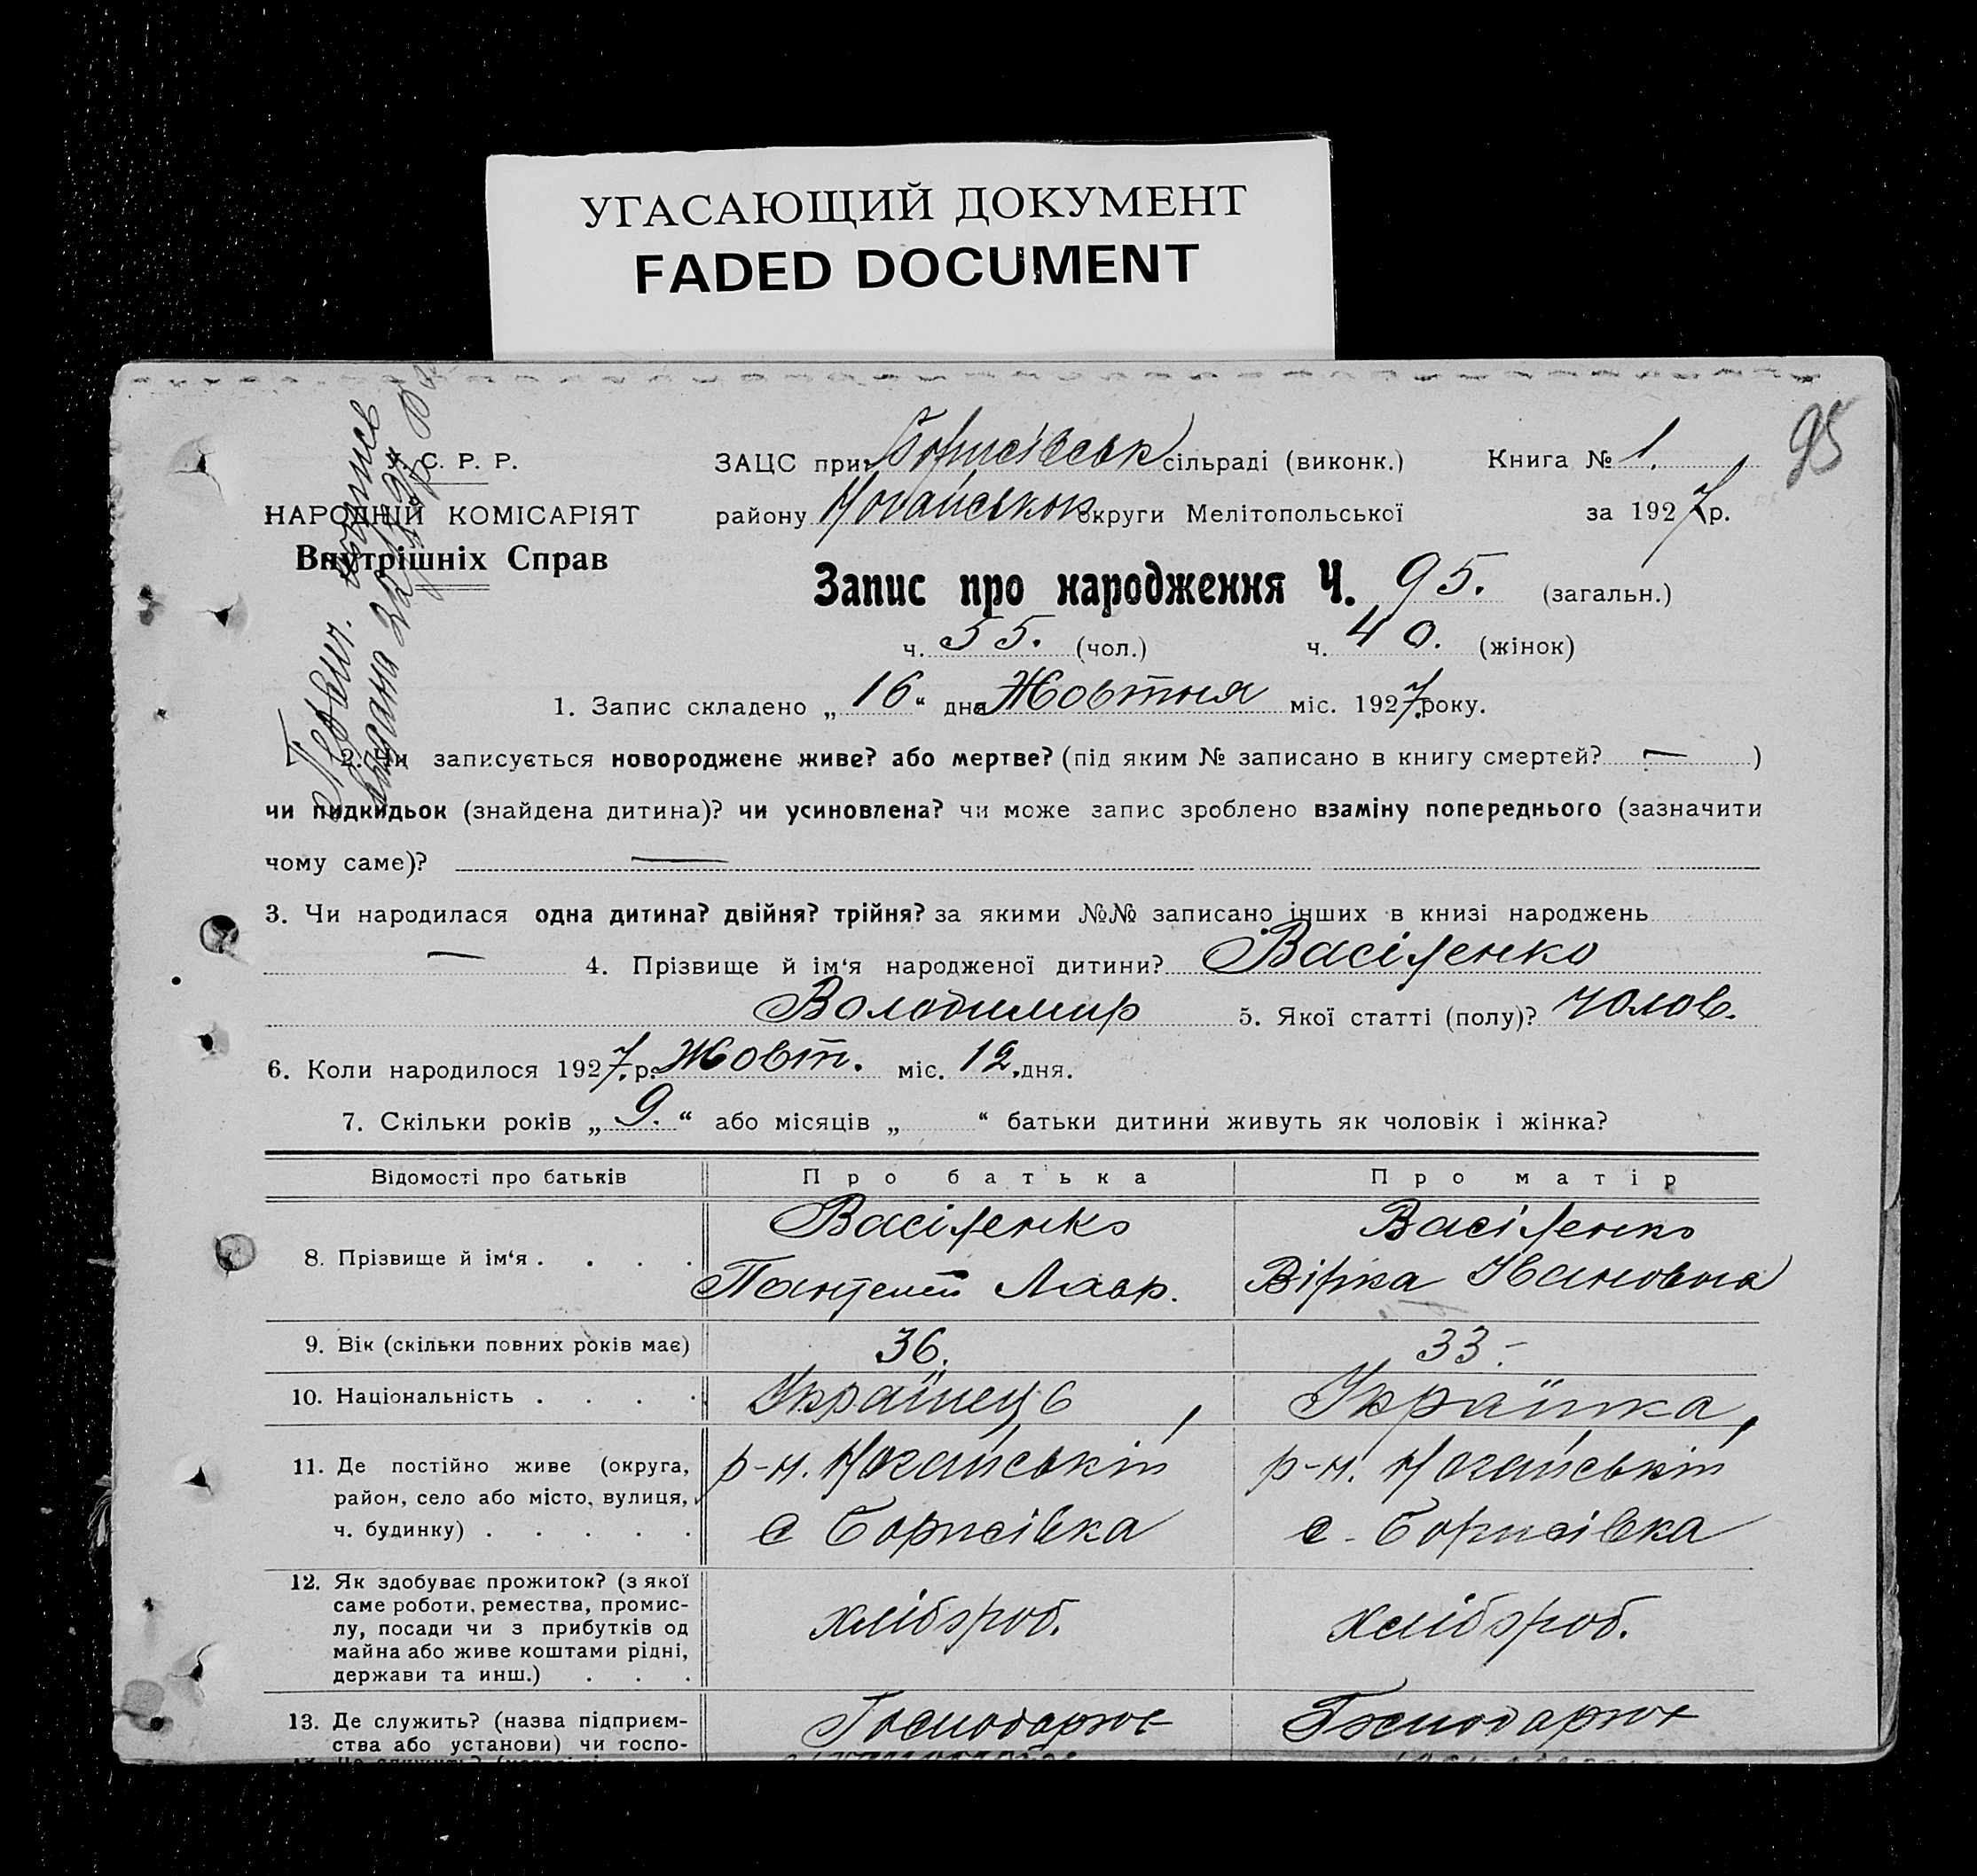 УГАСАЮЩИЙ ДОКУМЕНТ
FADED DOCUMENT
95
С. Р. Р.
НАРОДНІЙ КОМІСАРІЯТ
Внутрішніх Справ
ЗАЦС при Борисівськ сільраді (виконк.) Книга № 1.
району Ногайськоі округи Мелітопольської за 1927 р.
Запис про народження Ч. 95. (загальн.)
ч. 55. (чол.) ч. 40. (жінок)
1. Запис складено „ 16 “ дня Жовтня міс. 1927 року.
2. Чи записується новороджене живе? або мертве? (під яким № записано в книгу смертей? — )
чи підкидьок (знайдена дитина)? чи усиновлена? чи може запис зроблено взаміну попереднього (зазначити
чому саме)? —
3. Чи народилася одна дитина? двійня? трійня? за якими №№ записано інших в книзі народжень
— 4. Прізвище й ім‘я народженої дитини? Васіленко
Володимир 5. Якої статті (полу)? Чолов.
6. Коли народилося 1927. р. Жовт. міс. 12. дня.
7. Скільки років „ 9. “ або місяців „ “ батьки дитини живуть як чоловік і жінка?
Відомості про батьків Про батька Про матір
8. Прізвище й ім‘я . . . . Васіленко Васіленко
Пантелей Лавр. Вірка Ивановна
9. Вік (скільки повних років має) 36. 33-
10. Національність . . . . Українець Українка,
11. Де постійно живе (округа, р-н. Ногайській р-н. Ногайській
район, село або місто, вулиця,
ч. будинку) . . . . . с Борисівка с - Борисівка
12. Як здобуває прожиток? (з якої
саме роботи, ремества, промис-
лу, посади чи з прибутків од хлібороб. хлібороб.
майна або живе коштами рідні,
держави та инш.) . . .
13. Де служить? (назва підприєм- Господарює Господарює
ства або установи) чи госпо-